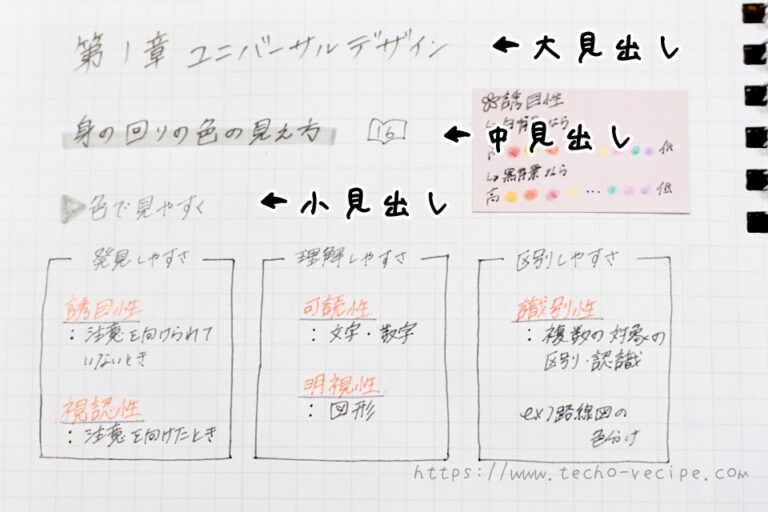 第1章 ユニバーサルデザイン ← 大見出し
身の回りの色の見え方 16 ← 中見出し
誘目性
なら
低
↳ 黒背景なら
高 ... 低
▶色で見やすく ← 小見出し
発見しやすさ
誘目性
：注意を向けられて
いないとき
視認性
：注意を向けたとき
理解しやすさ
可読性
：文字・数字
明視性
：図形
区別しやすさ
識別性
：複数の対象の
区別・認識
ex)路線図の
色分け
https://www.techo-recipe.com